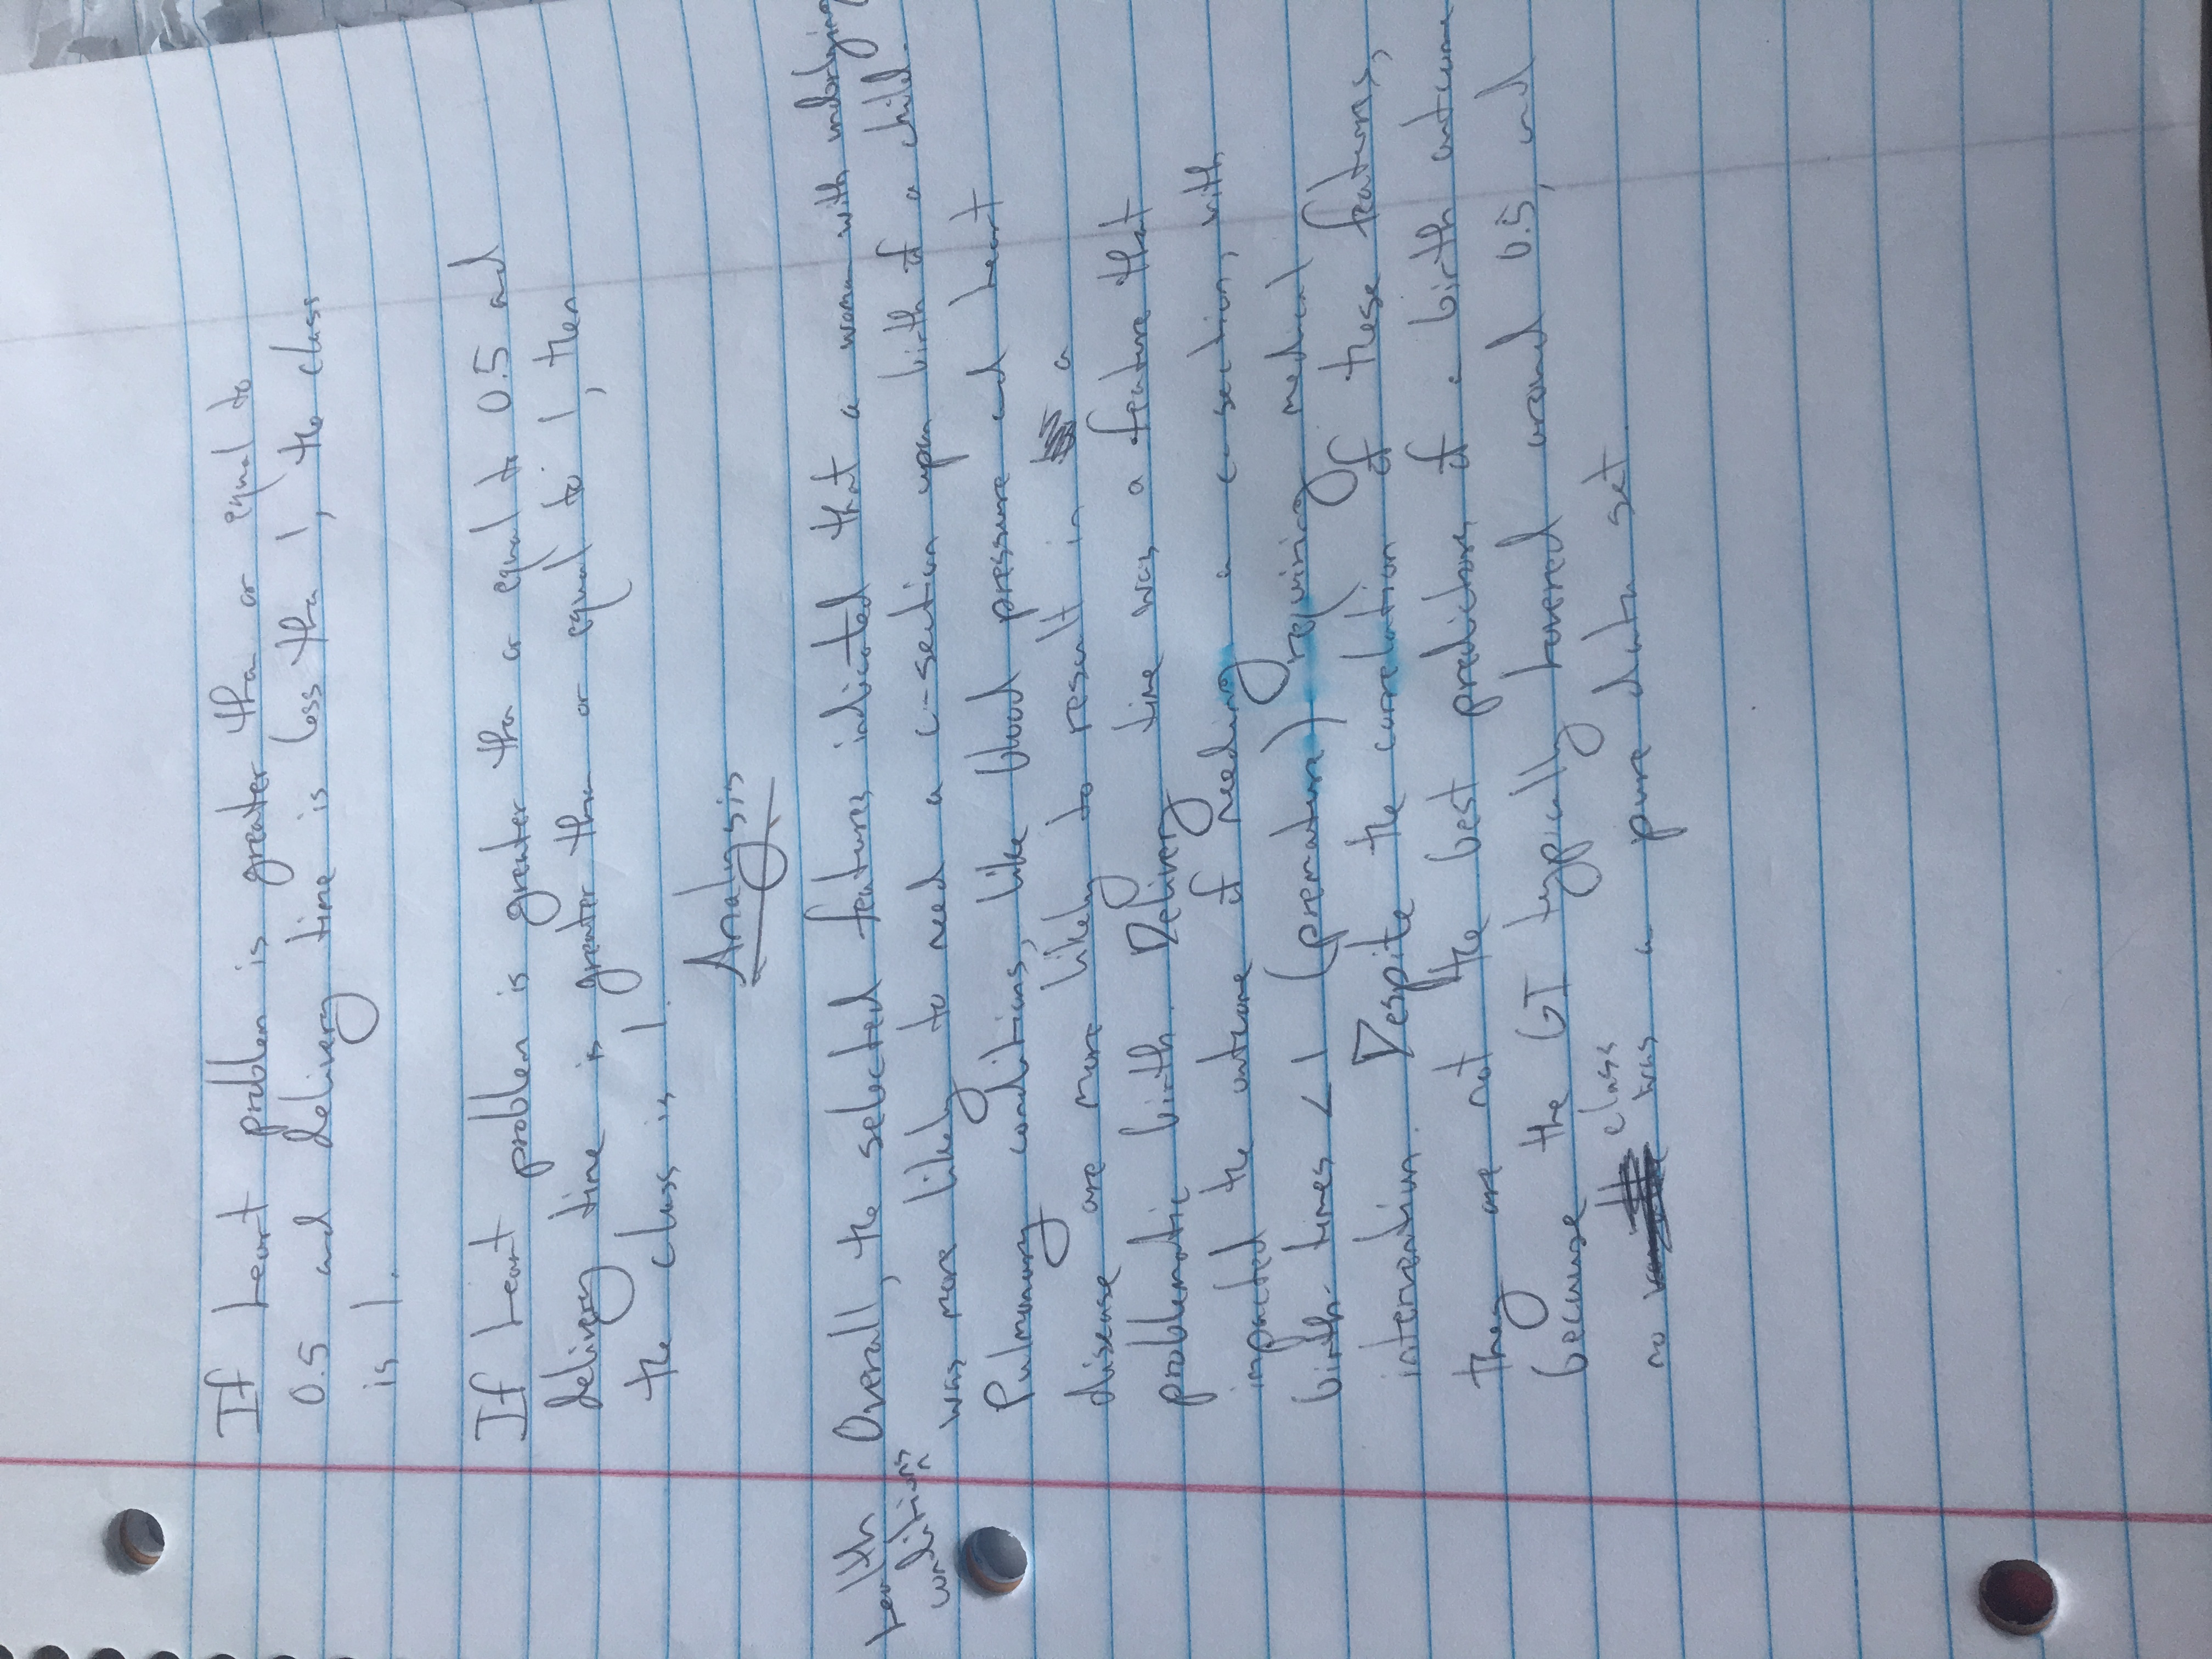 If heart problem is greater than or equal to
0.5 and delivery time is less than 1, the class
is 1.
If heart problem is greater than or equal to 0.5 and
delivery time is greater than or equal to 1, then
the class is 1.
Analysis
Overall, the selected features indicated that a woman with underlying
health
conditions
was more likely to need a c-section upon birth of a child.
Pulmonary conditions, like blood pressure and heart
disease are more likely to result in a
problematic birth. Delivery time was a feature that
impacted the outcome of needing a c-section, with
birth-times < 1 (premature) requiring medical
intervention. Despite the correlation of these features,
they are not the best predictors of a birth outcome
because the GI typically hovered around 0.5, and
no class was a pure data set.